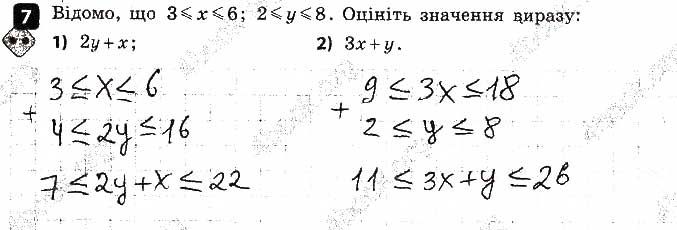 7 Відомо, що 3⩽x⩽6; 2⩽y⩽8. Оцініть значення виразу:
1) 2y+x; 2) 3x+y.
3 ≤ x ≤ 6
+
4 ≤ 2y ≤ 16
7 ≤ 2y+x ≤ 22
9 ≤ 3x ≤ 18
+
2 ≤ y ≤ 8
11 ≤ 3x+y ≤ 26